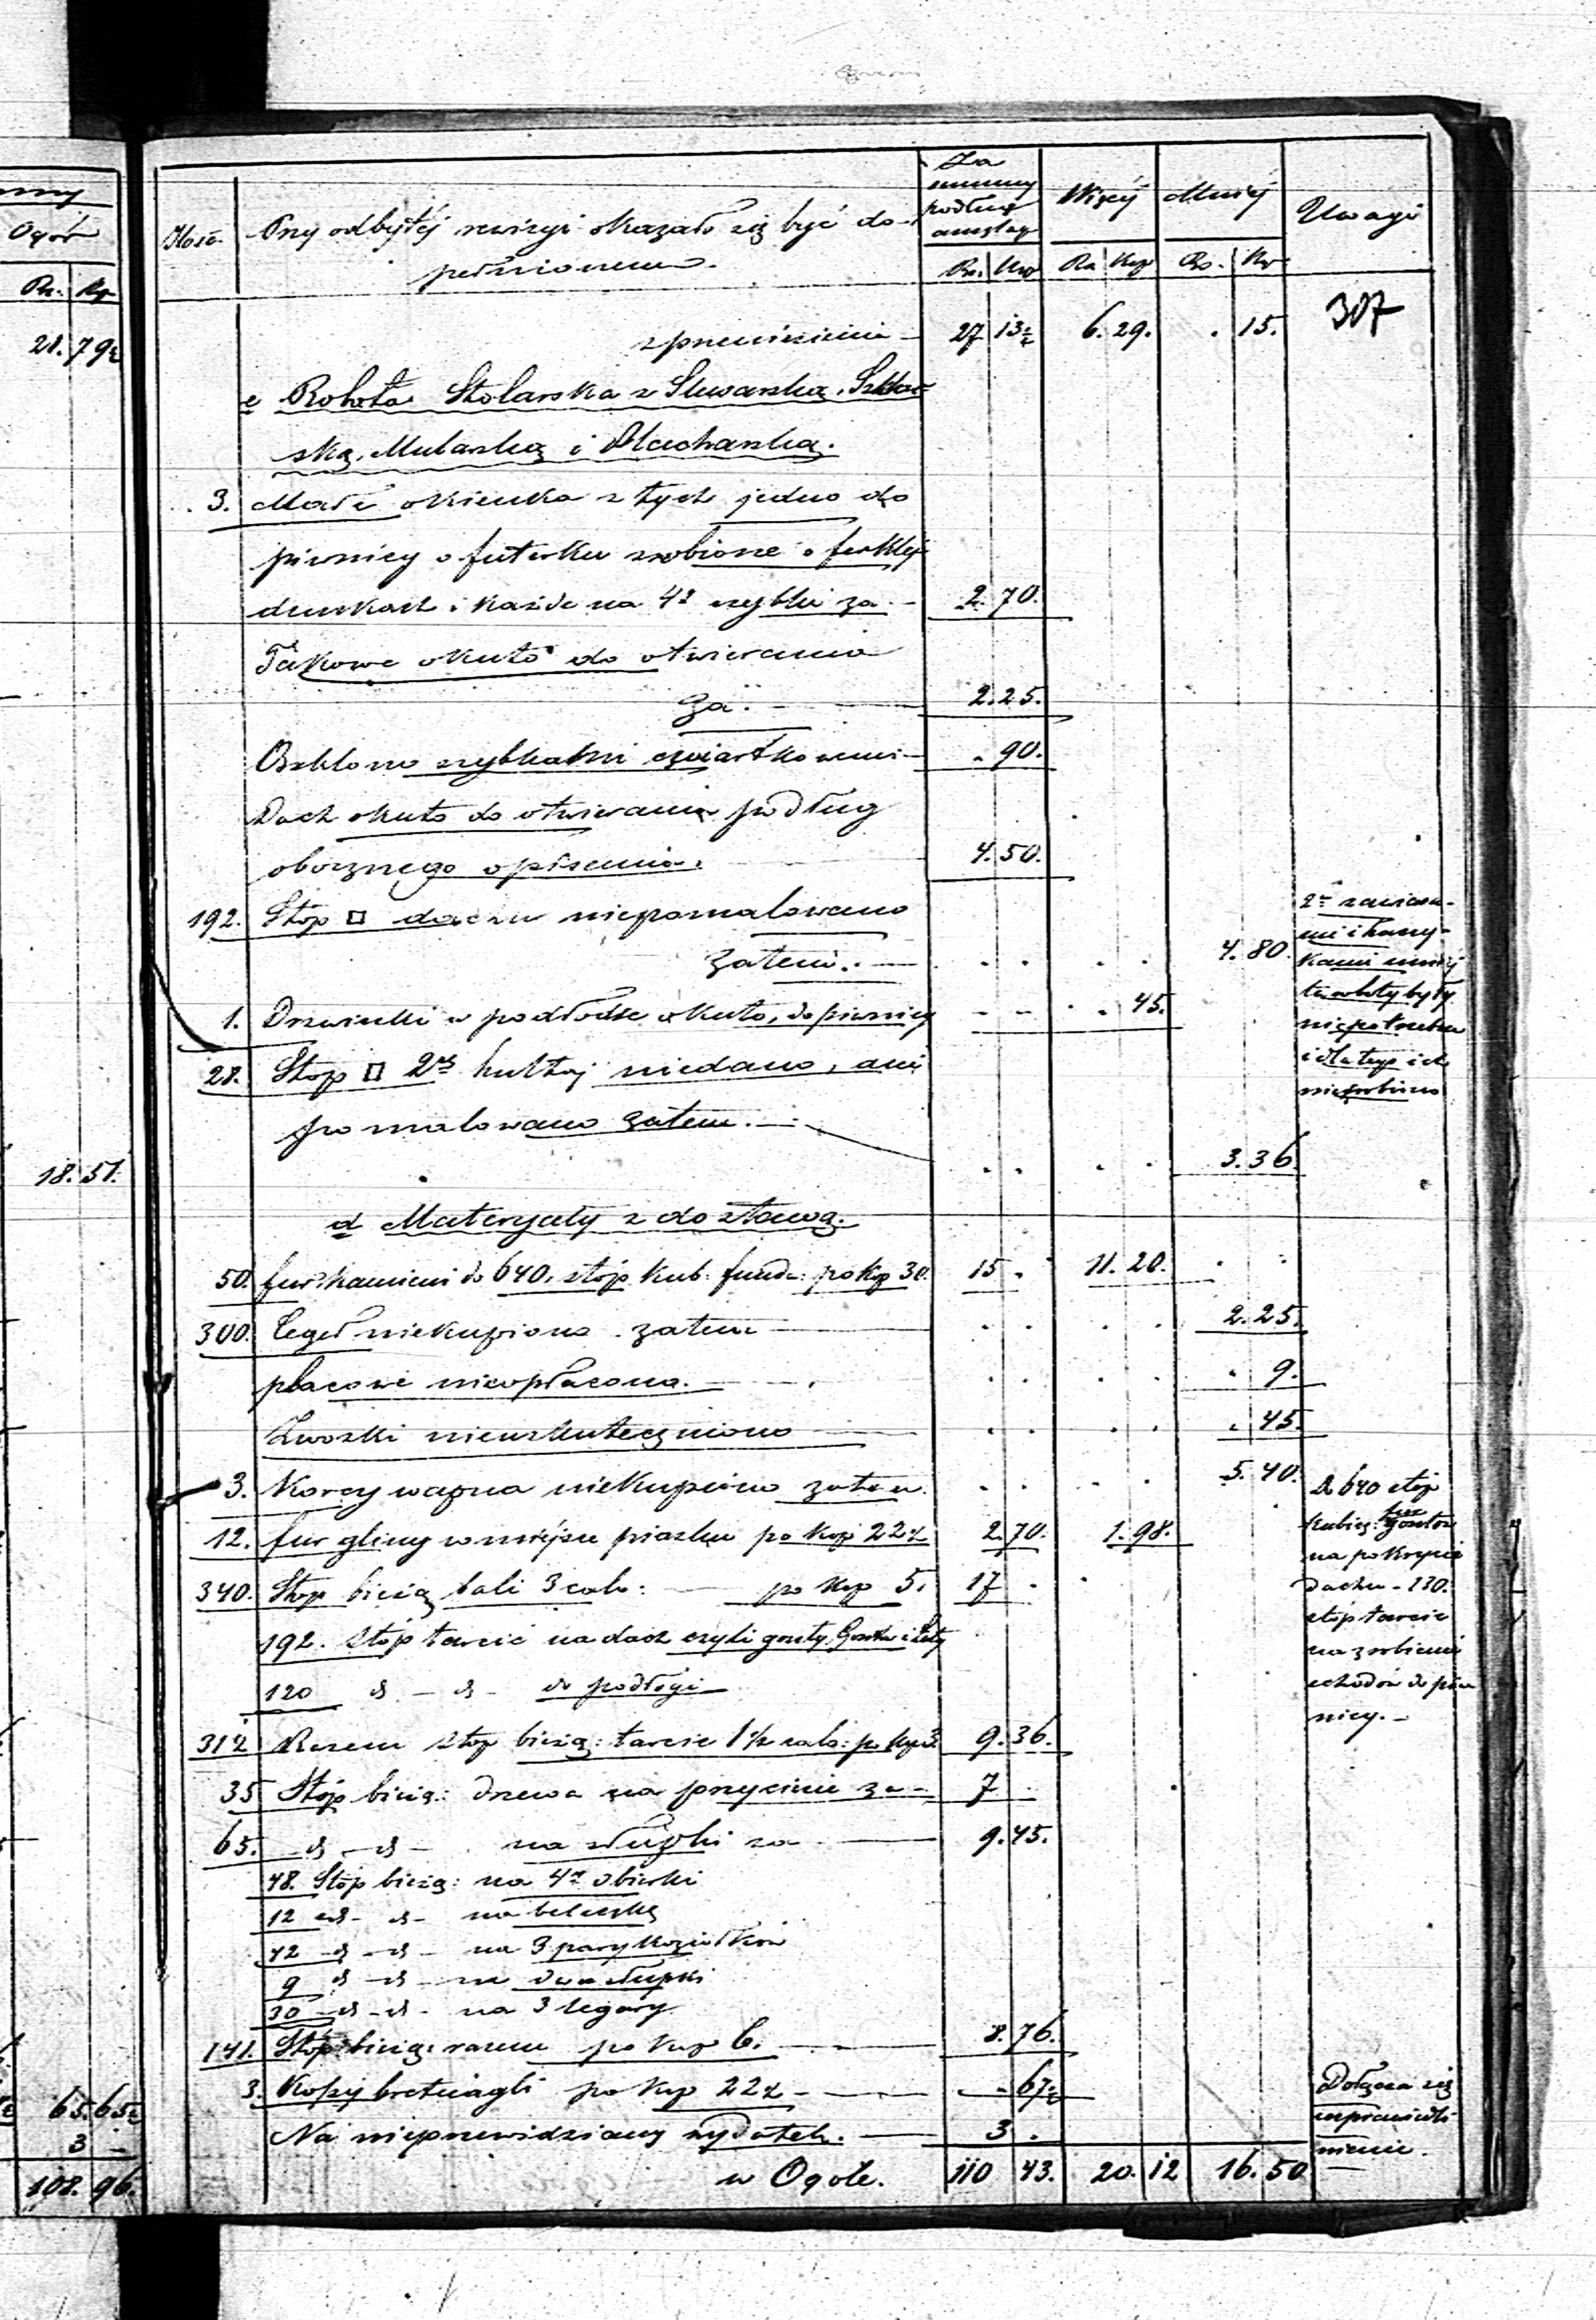 Ogół
Rs. Kp
21. 79½
18. 51.
65. 65½
3 -
108. 96.
Ilość.
Przy odbytéj rewizyi okazało się być do-
pełnionem.
Za
summy
podług
anszlag
Więcéj
Mniéj
Uwagi
Rs. Kop
Rs Kop
Rs. Kp
307
z przeniesienia - 27 13½ 6. 29. . 15.
c Robota Stolarska z Slusarską, Szklar-
ską, Mularską i Blacharską.
3. Małe okienka z tych jedno do
piwnicy o futerku zrobione o
i każde na 4 szybki za. - 2. 70.
Takowe okuto do otwierania
za. 2. 25.
Oszklono szybkami cwiartkowemi - . 90.
Dach okuto do otwierania podług
obocznego opisania. 4. 50.
192. Stop □ dachu niepomalowano
zatem. - . . . . 4. 80.
1. Drzwiczki w podłodze okuto, do piwnicy - - . . 45.
28. Stop □ niedano, ani
pomalowano zatem. - . . . . 3. 36.
2 zawiasa-
mi i haczy-
kami
roboty były
niepotrzebne
i dla tego ich
niezrobiono
d Materyały z dostawą.
50. fur kamieni do 640. stóp kub: fund: po kop 30. 15 . 11. 20. . .
300. Cegeł niekupiono zatem . . . . 2. 25.
placowe nieopłacono. . . . . . 9.
Zwózki nieuskuteczniono . . . . . 45.
3. Korcy wapna niekupiono zatem. . . . . 5. 40.
12. fur gliny w miejsce piasku po kop 22½ 2. 70. 1. 98.
340. Stop bieżą bali 3 calo: po kop 5. 17 .
192. stóp tarcic na dach czyli gonty, i Łaty
120 d - d - do podłogi
312 Razem stop bieżą: tarcic 1½ calo: po kop 3. 9. 36.
35 Stóp bieżą: drzewa na przyciesie za - 7 .
65. d - d - na słupki za 9. 45.
48. Stóp bieżą: na 4 obierki
12 d - d - na beleczkę
42 d - d - na 3 pary koziołków
9 d - d - na dwa słupki
30 - d - d - na 3 legary
141. Stóp bieżą: razem po kop 6. 8. 76.
3. Kopy bretnagli po kop 22½ - . 67½
Na nieprzewidziany wydatek. 3 .
w Ogóle. 110 43. 20. 12 16. 50
Do 640 stóp
kubicz:
na pokrycie
dachu - 130.
stóp tarcic
na zrobienie
schodów do piw
nicy. -
Dołącza się
usprawiedli
nienie.